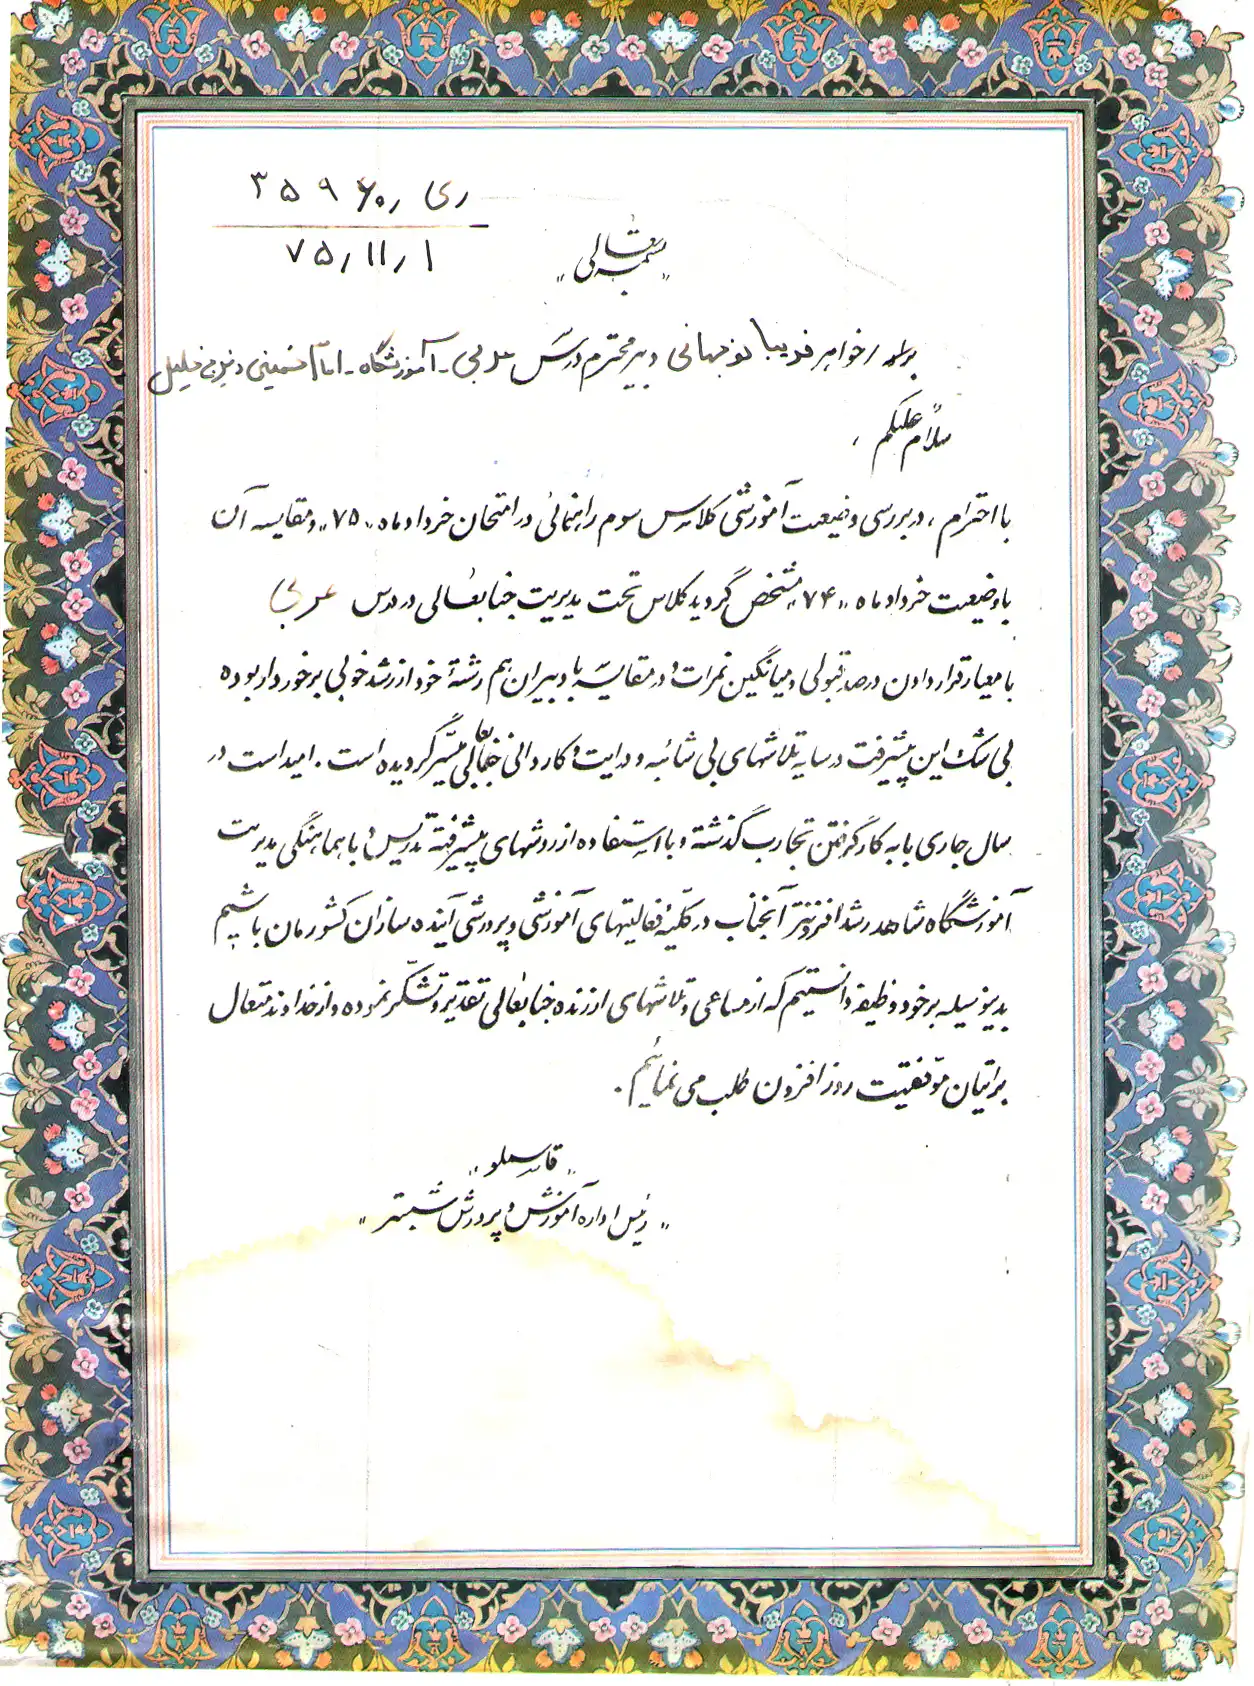 ۳۵۹۶۰ر ری
۷۵/۱۱/۱
"بسمه تعالی"
برادر/خواهر فریبا نوجهانی دبیر محترم درس عربی - آموزشگاه - امام خمینی دیزج خلیل
سلام علیکم ،
با احترام ، در بررسی وضعیت آموزشی کلاس سوم راهنمائی در امتحان خرداد ماه "۷۵" و مقایسه آن
با وضعیت خرداد ماه "۷۴" مشخص گردید کلاس تحت مدیریت جنابعالی در درس عربی
با معیار قرار دادن درصد قبولی و میانگین نمرات و در مقایسه با دبیران هم رشتهٔ خود از رشد خوبی برخوردار بوده
بی شک این پیشرفت در سایه تلاشهای بی شائبه و درایت و کاردانی جنابعالی میسّر گردیده است . امید است در
سال جاری با به کار گرفتن تجارب گذشته و با استفاده از روشهای پیشرفته تدریس و با هماهنگی مدیریت
آموزشگاه شاهد رشد افزونتر آنجناب در کلیّهٔ فعالیتهای آموزشی و پرورشی آینده سازان کشورمان باشیم
بدینوسیله بر خود وظیفه دانستیم که از مساعی و تلاشهای ارزنده جنابعالی تقدیر و تشکّر نموده و از خداوند متعال
برایتان موّفقیّت روز افزون طلب می نمائیم .
"قاسملو"
"رئیس اداره آموزش و پرورش شبستر"